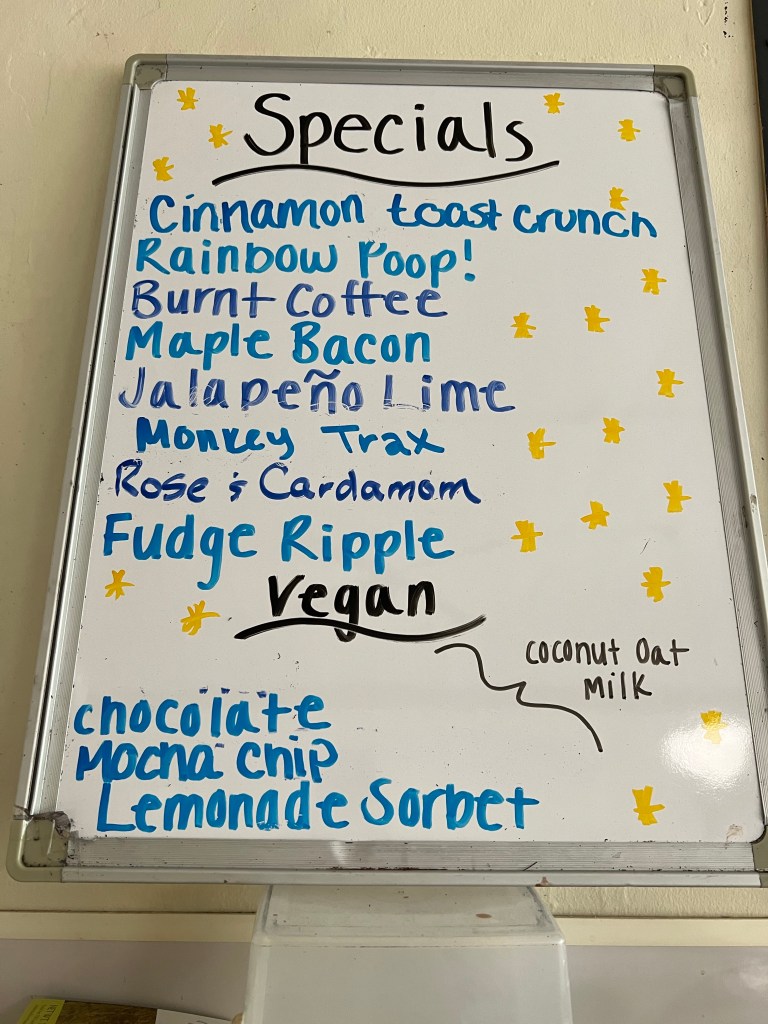 Specials
Cinnamon toast crunch
Rainbow Poop!
Burnt Coffee
Maple Bacon
Jalapeño Lime
Monkey Trax
Rose & Cardamom
Fudge Ripple
Vegan
coconut oat
milk
chocolate
Mocha chip
Lemonade Sorbet